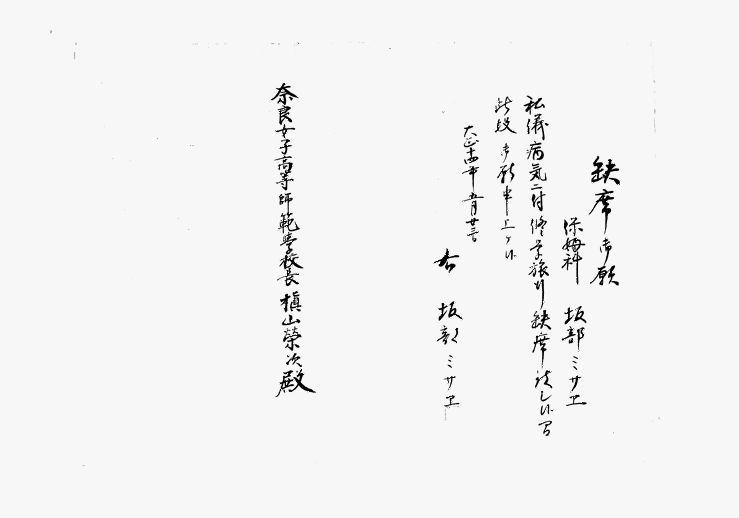 缺席御願
保姆科 坂部ミサヱ
私儀病気ニ付修学旅行缺席致し候間
此段御願申上ケ候
大正十四年五月廿三日
右 坂部ミサヱ
奈良女子高等師範學校長 槇山榮次殿